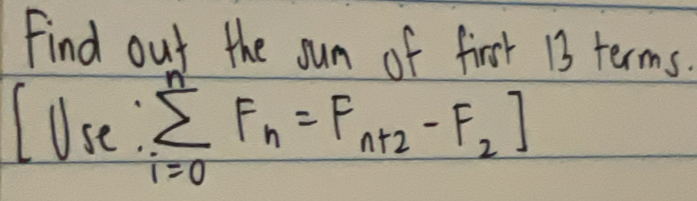 Find out the sum of first 13 terms.
[Use: \sum_{i=0}^{n} F_n = F_{n+2} - F_2]